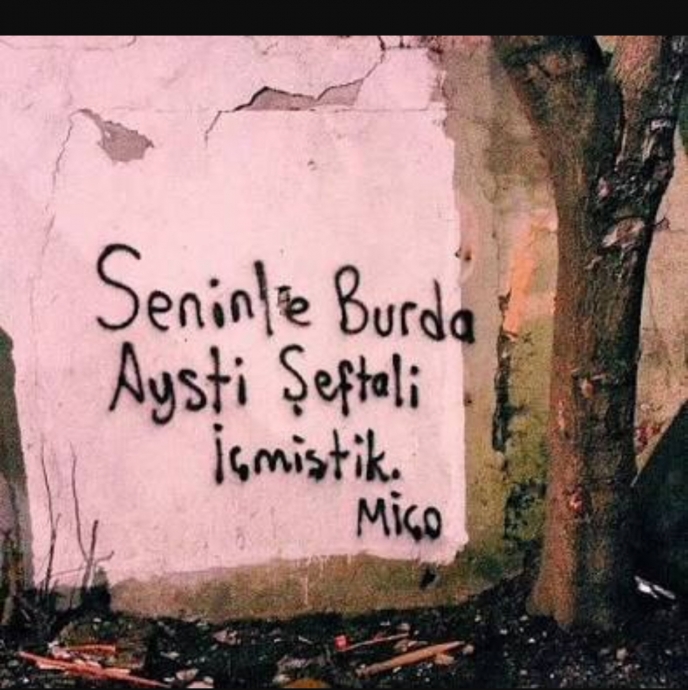 Seninle Burda
Aysti Şeftali
içmiştik.
Miço